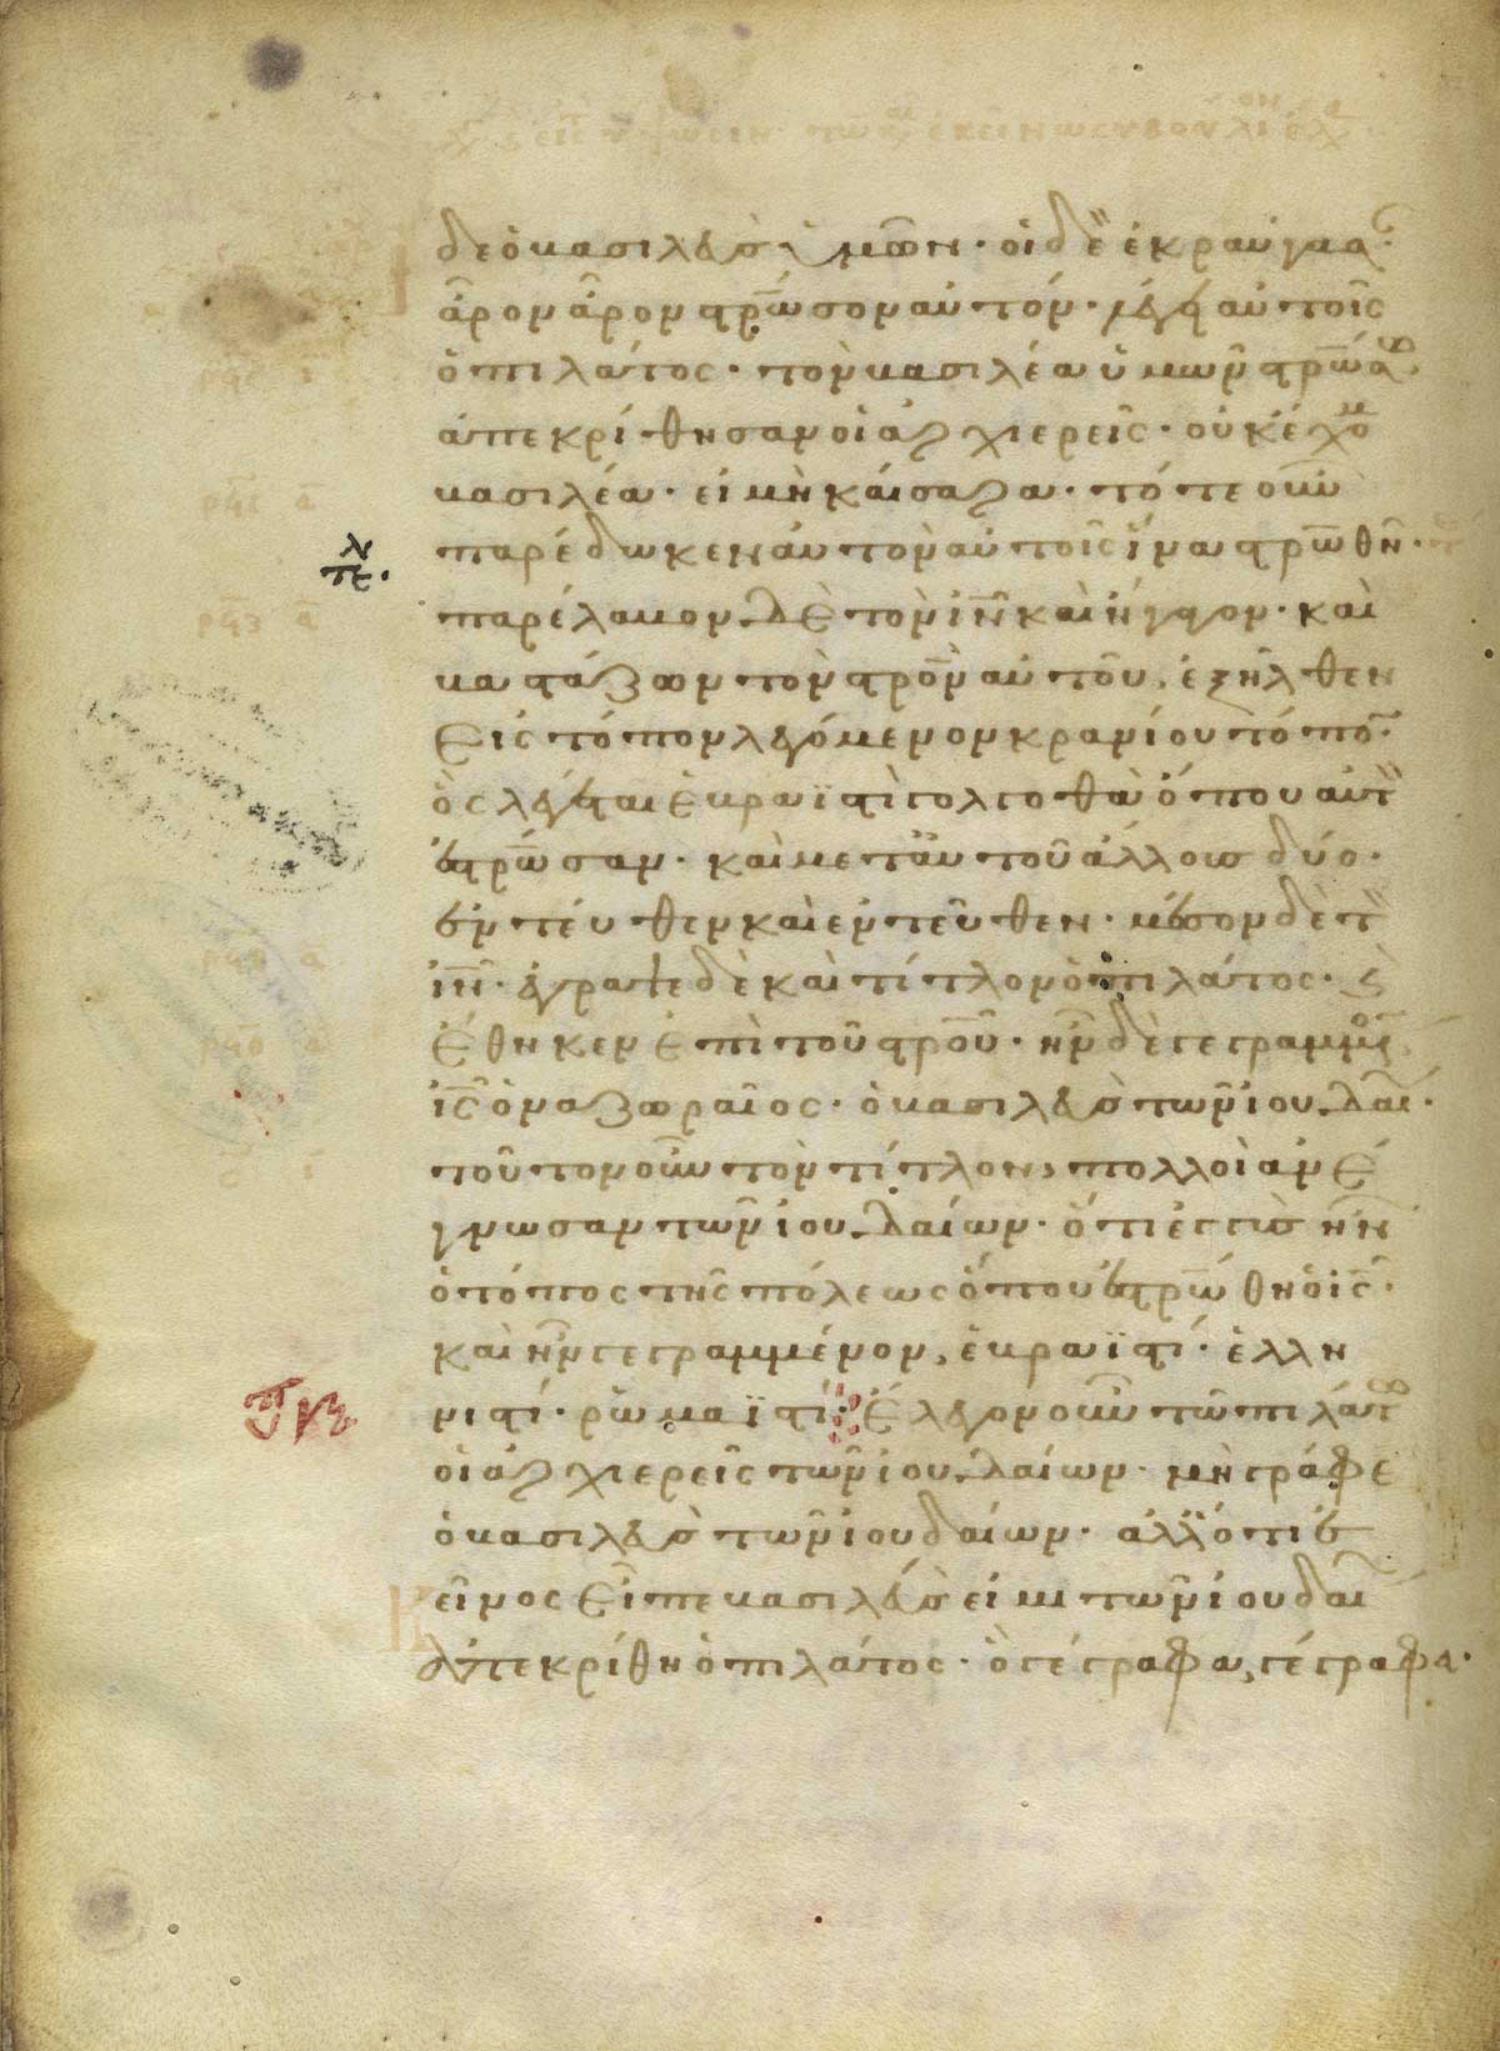 δε ὁ βασιλεὺς ὑμῶν· οἱ δὲ ἐκραύγασ·
ἆρον ἆρον στρ̅ωσον αὐτόν· λέγει αὐτοῖς
ὁ πιλάτος· τὸν βασιλέα ὑμῶν στρ̅ώσω·
ἀπεκρίθησαν οἱ ἀρχιερεῖς· οὐκ ἔχομ
βασιλέα· εἰ μὴ καίσαρα· τότε οὖν
παρέδωκεν αὐτὸν αὐτοῖς ἵνα στρ̅ωθῆ·
παρέλαβον δὲ τὸν ι̅ν̅ καὶ ἤγαγον· καὶ
βαστάζων τὸν στρ̅ὸν αὐτοῦ, ἐξῆλθεν
εἰς τόπον λεγόμενον κρανίου τόπο·
ὃς λέγεται ἑβραϊστὶ γολγοθὰ ὅπου αὐτ
ἐστρ̅ωσαν· καὶ μετ' αὐτοῦ ἄλλους δύο·
ἐντεῦθεν καὶ ἐντεῦθεν· μέσον δὲ τ
ι̅ν̅· ἔγραψε δὲ καὶ τίτλον ὁ πιλάτος· ϗ
ἔθηκεν ἐπὶ τοῦ στρ̅οῦ· ἦν δὲ γεγραμμέν
ι̅ς̅ ὁ ναζωραῖος· ὁ βασιλεὺς τῶν ἰουδαί·
τοῦτον οὖν τὸν τίτλον, πολλοὶ ἀνέ
γνωσαν τῶν ἰουδαίων· ὅτι ἐγγὺς ἦν
ὁ τόπος τῆς πόλεως ὅπου ἐστρ̅ώθη ὁ ι̅ς̅·
καὶ ἦν γεγραμμένον, ἑβραϊστί· ἑλλη
νιστί· ῥωμαϊστί· ἔλεγον οὖν τῶ πιλάτ
οἱ ἀρχιερεῖς τῶν ἰουδαίων· μὴ γράφε
ὁ βασιλεὺς τῶν ἰουδαίων· ἀλλ' ὅτι ἐ
κεῖνος εἶπε βασιλεύς εἰμι τῶν ἰουδαί
ἀπεκρίθη ὁ πιλάτος· ὃ γέγραφα, γέγραφα·